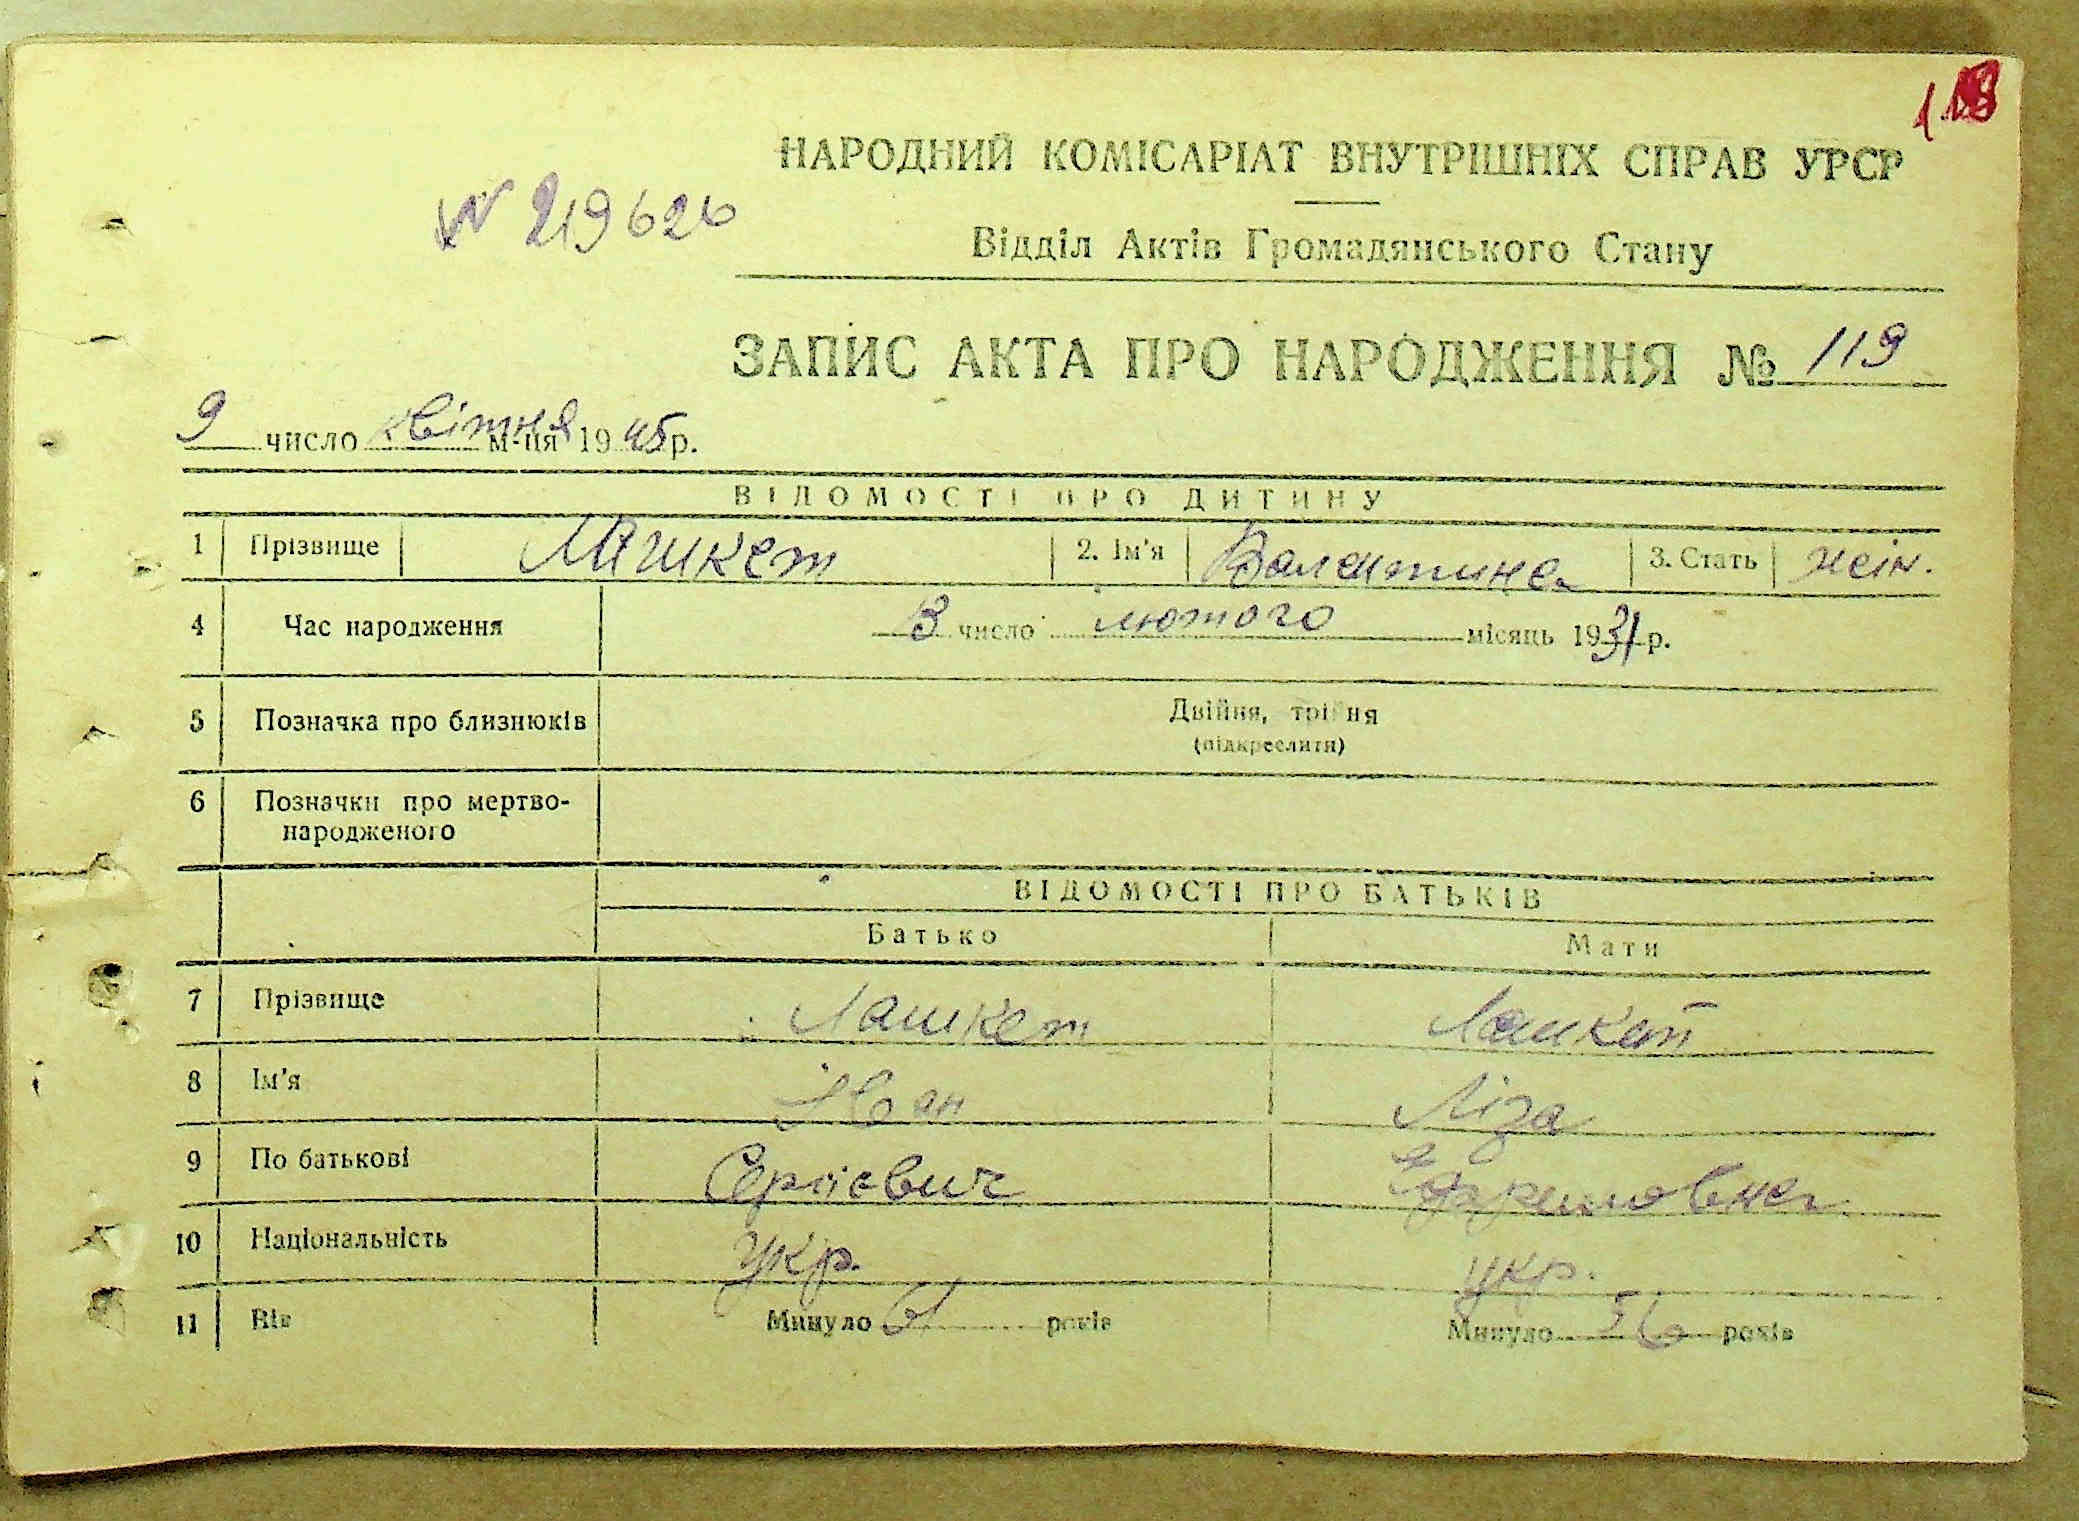 НАРОДНИЙ КОМІСАРІАТ ВНУТРІШНІХ СПРАВ УРСР
№ 219626
Відділ Актів Громадянського Стану
ЗАПИС АКТА ПРО НАРОДЖЕННЯ № 119
9 число квітня м-ця 1945 р.
ВІДОМОСТІ ПРО ДИТИНУ
1 Прізвище Лашкет 2. Ім'я Валентина 3. Стать жін.
4 Час народження 3 число лютого місяць 1931 р.
5 Позначка про близнюків Двійня, трійня
(підкреслити)
6 Позначки про мертво-
народженого
ВІДОМОСТІ ПРО БАТЬКІВ
Батько Мати
7 Прізвище Лашкет Лашкет
8 Ім'я Іван Ліза
9 По батькові Сергієвич Єфремовна
10 Національність укр. укр.
11 Вік Минуло 61 років Минуло 56 років